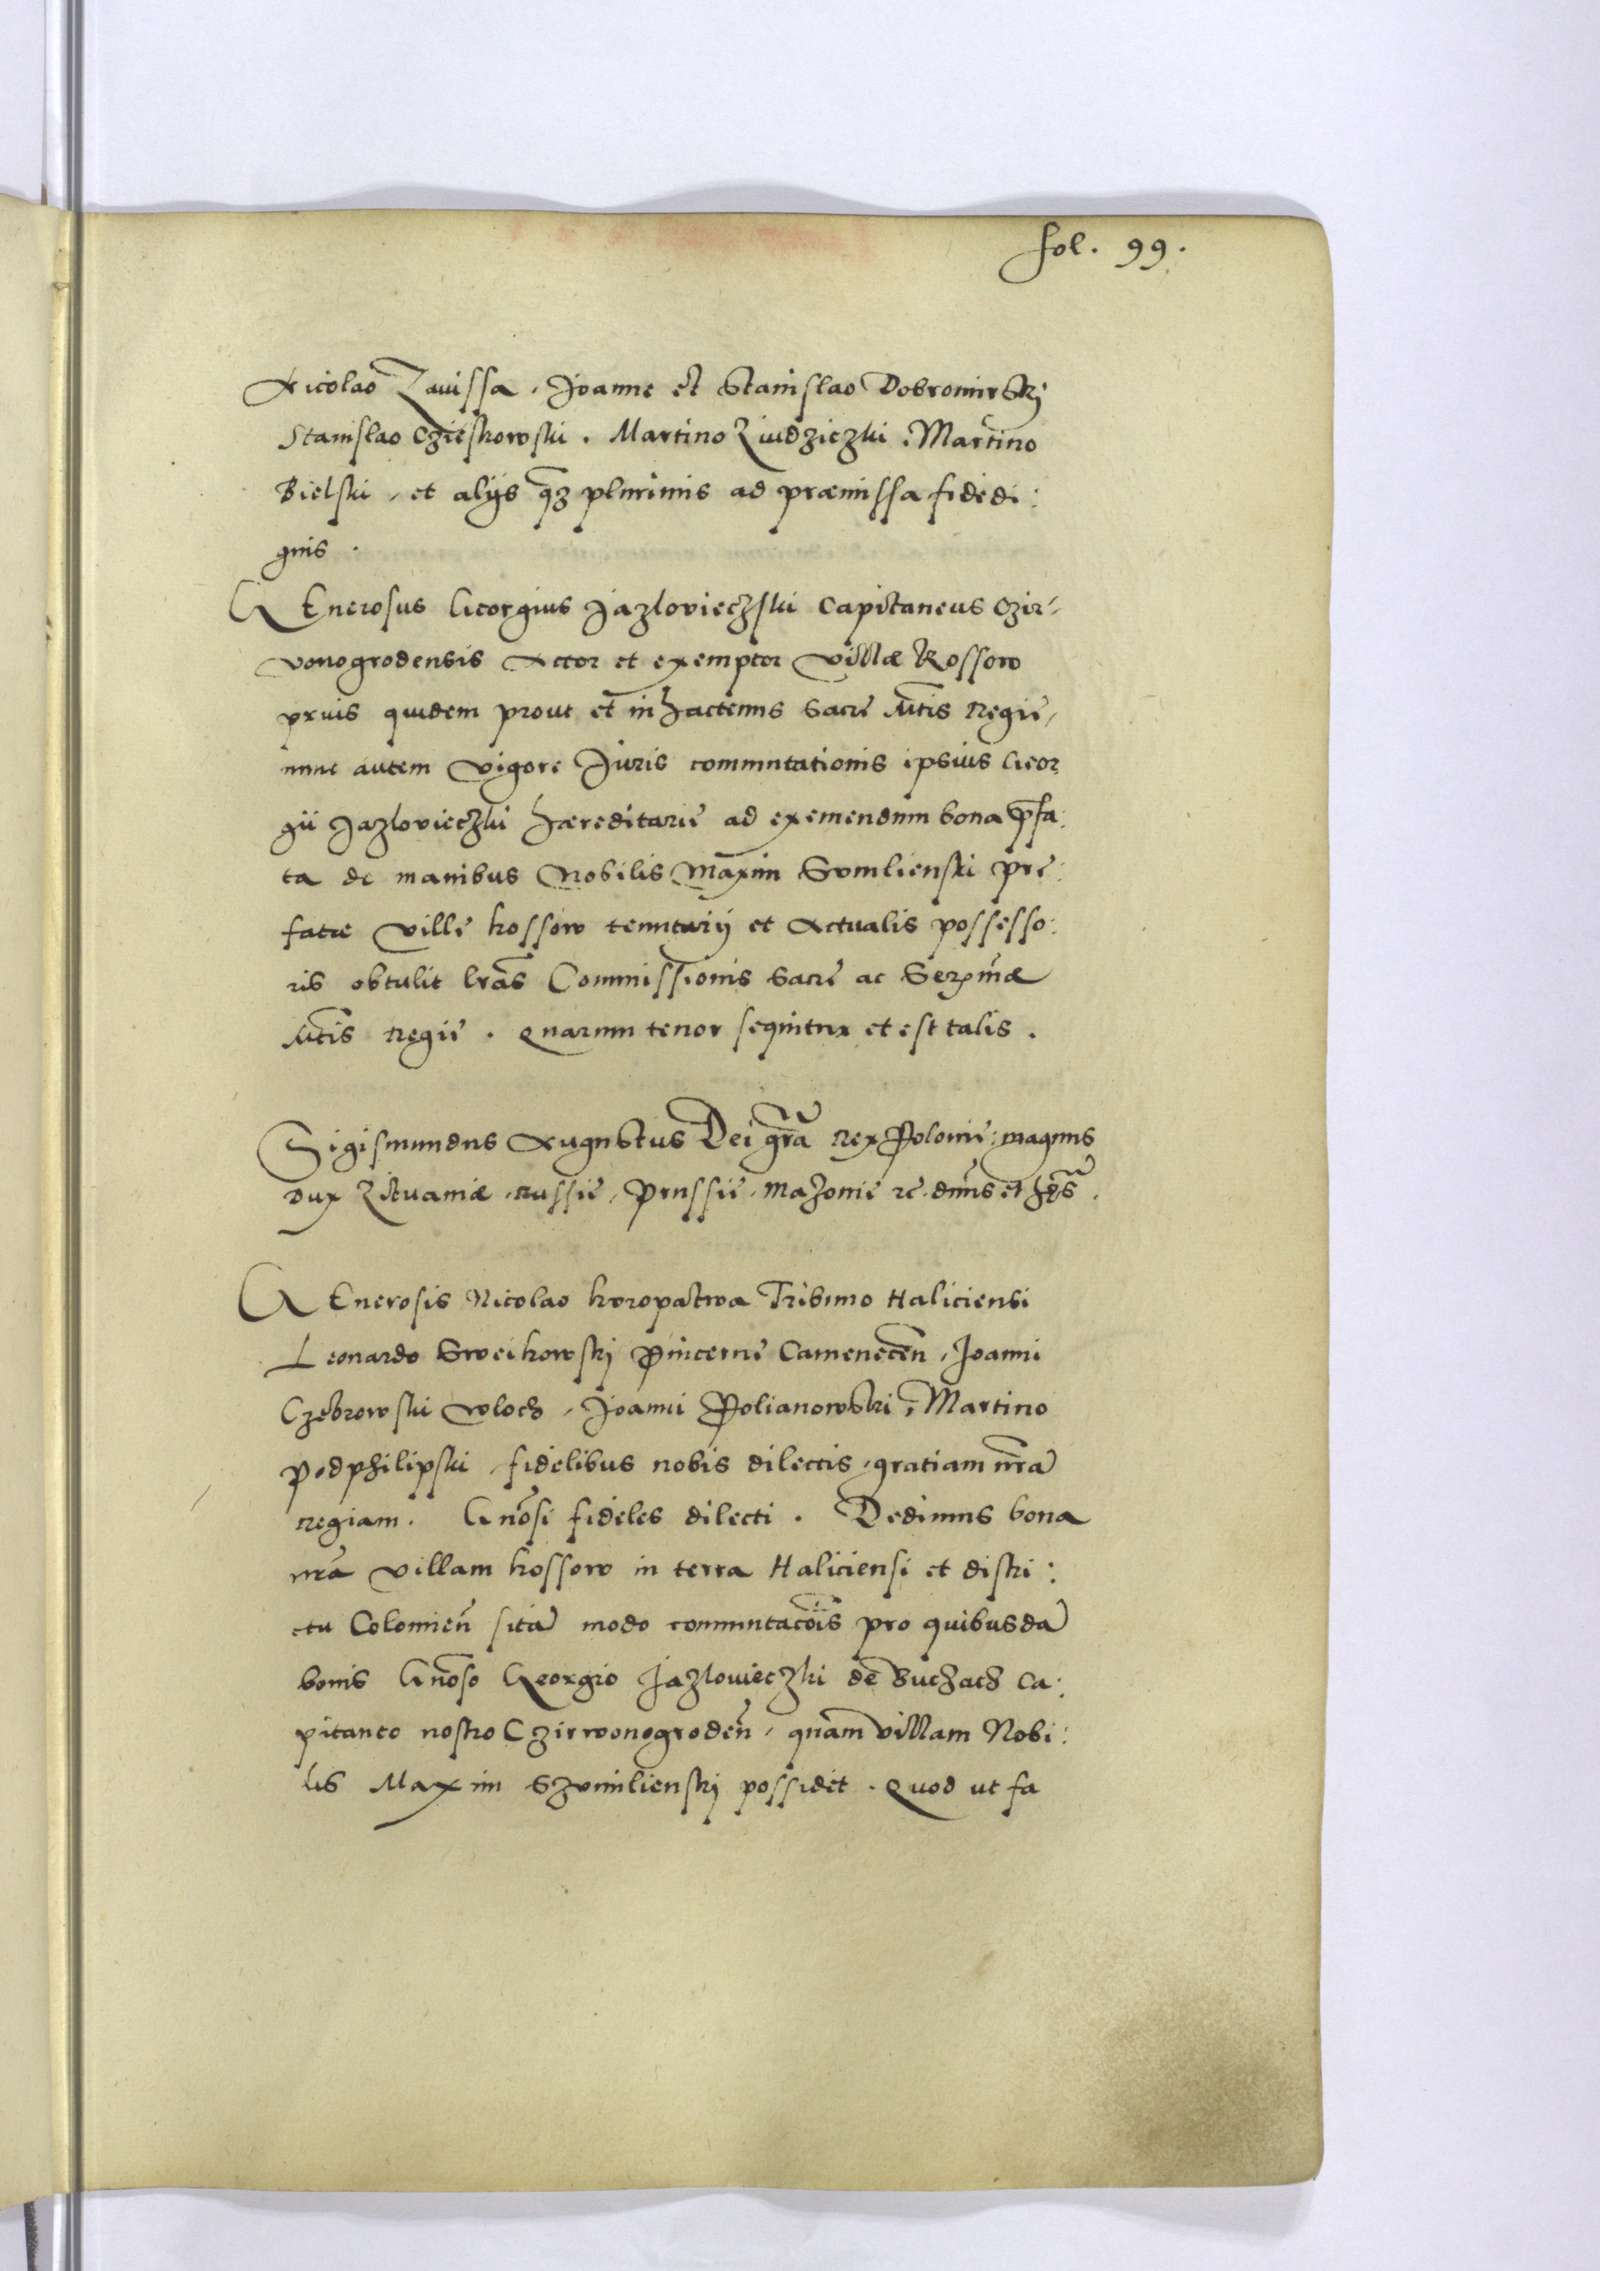 fol. 99.
Nicolao Zavissa, Joanne et Stanislao Dobromirskj
Stanislao Czieskowski. Martino Ziudziczki. Martino
Bielski, et alijs q̃z plurimis ad præmissa fidedi:
gnis.
GEnerosus Georgius Jazlovieczski Capitaneus Czir-
vonogrodensis Actor et exemptor villæ Kossow
prius quidem prout et in hactenus Sacrę M̃tis Regię,
nunc autem vigore Juris commutationis ipsius Geor
gii Jazlovieczki hæreditarię ad exemendum bona p̃fa:
ta de manibus Nobilis Maxim Somlienski prę:
fatæ villę kossow tenutarij et Actualis possesso:
ris obtulit lr̃as Commissionis Sacrę ac Serm̃æ
M̃tis Regię. Quarum tenor sequitur et est talis.
Sigismundus Augustus Dei gr̃a Rex Polonię: magnus
Dux Lituaniæ, Russię, Prussię, Mazovię rc. dñus et hęs̃.
GEnerosis Nicolao koropatwa Tribuno Haliciensi
Leonardo Sweikowskj Pincernę Camenecen̄, Joanni
Czebrowski Wloch, Joanni Polianowski, Martino
Podphilipski, fidelibus nobis dilectis, gratiam nr̃ā
regiam. Gnõsi fideles dilecti. Dedimus bona
nr̃a villam kossow in terra Haliciensi et distri:
ctu Colomien̄ sitā modo commutacõis pro quibusdā
bonis Gnõso Georgio Jazlowieczki de Buchach Ca:
pitaneo nostro Czirwonogroden̄, quam villam Nobi:
lis Maxim Szomlienskj possidet. Quod ut fa